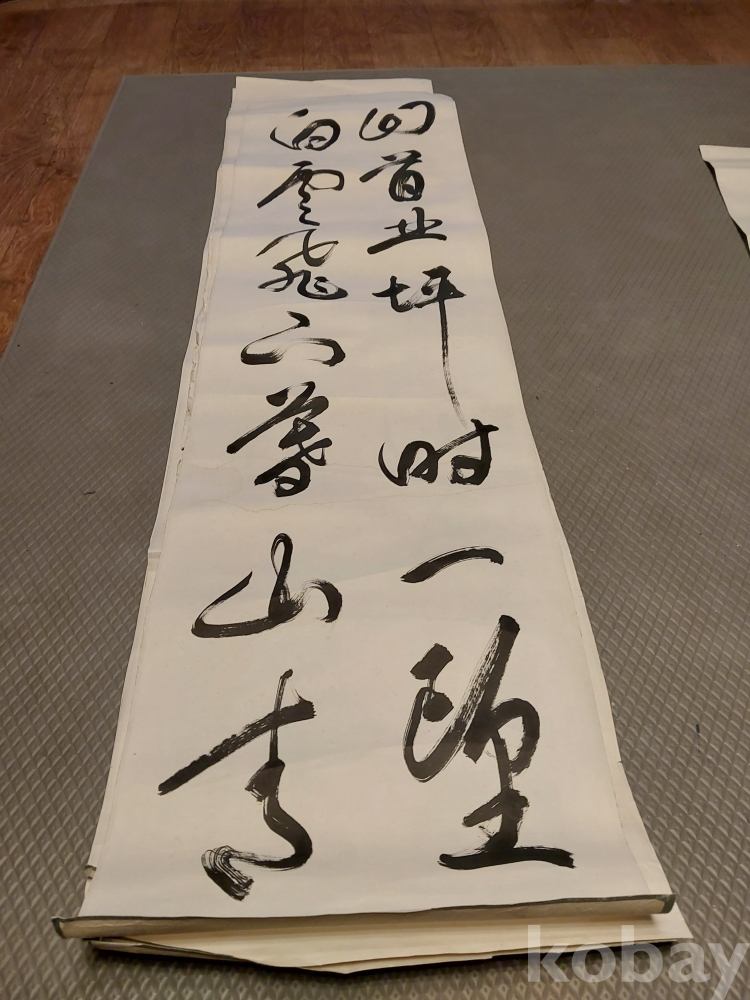 回首北坪時一望
白雲飛下暮山青
kobay